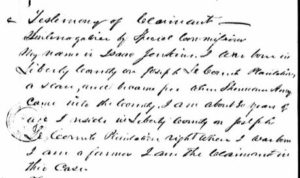 Testimony of Claimant
Interrogatories by Special Commissioner
My name is Isaac Jenkins, I was born in
Liberty County on Joseph Le Conte Plantation
a slave, and became free when Sherman Army
came into the County, I am about 30 years of
age I reside in Liberty County on Joseph
Le Conte Plantation right where I was born
I am a farmer I am the Claimant in
this Case